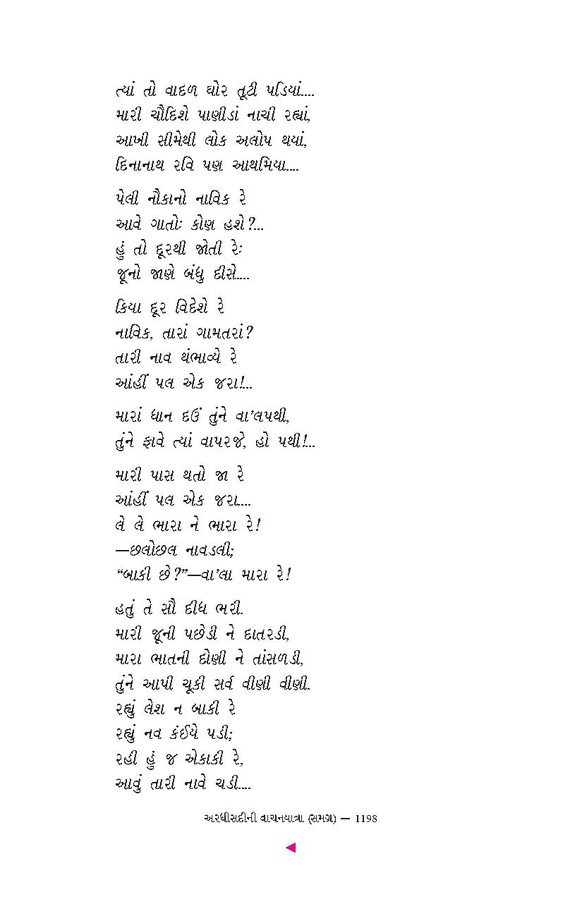 ત્યાં તો વાદળ ઘોર તૂટી પડિયાં....
મારી ચૌદિશે પાણીડાં નાચી રહ્યાં,
આખી સીમેથી લોક અલોપ થયાં,
દિનાનાથ રવિ પણ આથમિયા....
પેલી નૌકાનો નાવિક રે
આવે ગાતોઃ કોણ હશે?...
હું તો દૂરથી જોતી રેઃ
જૂનો જાણે બંધુ દીસે....
કિયા દૂર વિદેશે રે
નાવિક, તારાં ગામતરાં?
તારી નાવ થંભાવ્યે રે
આંહીં પલ એક જરા!...
મારાં ધાન દઉં તુંને વા’લપથી,
તુંને ફાવે ત્યાં વાપરજે, હો પથી!...
મારી પાસ થતો જા રે
આંહીં પલ એક જરા....
લે લે ભારા ને ભારા રે!
—છલોછલ નાવડલી;
“બાકી છે?”—વા’લા મારા રે!
હતું તે સૌ દીધ ભરી.
મારી જૂની પછેડી ને દાતરડી,
મારા ભાતની દોણી ને તાંસળડી,
તુંને આપી ચૂકી સર્વ વીણી વીણી.
રહ્યું લેશ ન બાકી રે
રહ્યું નવ કંઈયે પડી;
રહી હું જ એકાકી રે,
આવું તારી નાવે ચડી....
અરધીસદીની વાચનયાત્રા (સમગ્ર) — 1198